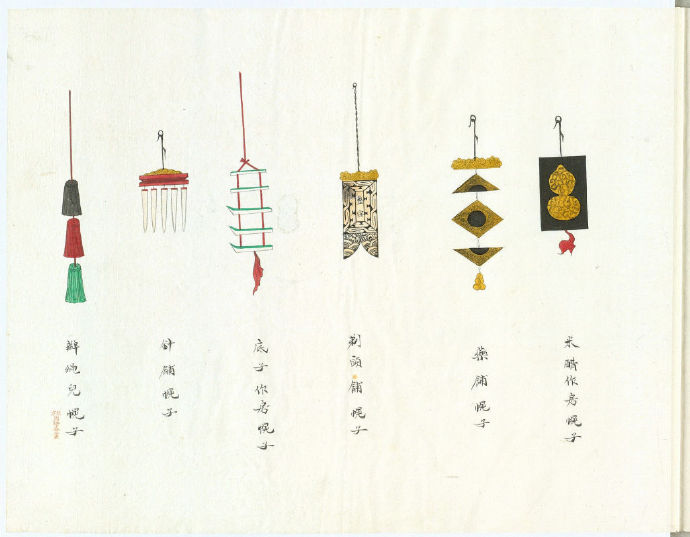 米醋作房幌子
藥舖幌子
剃頭舖幌子
底子作房幌子
針舖幌子
辮繩兒幌子